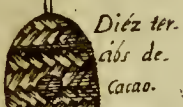 Diéz ter-
cibs de-
Cacao.